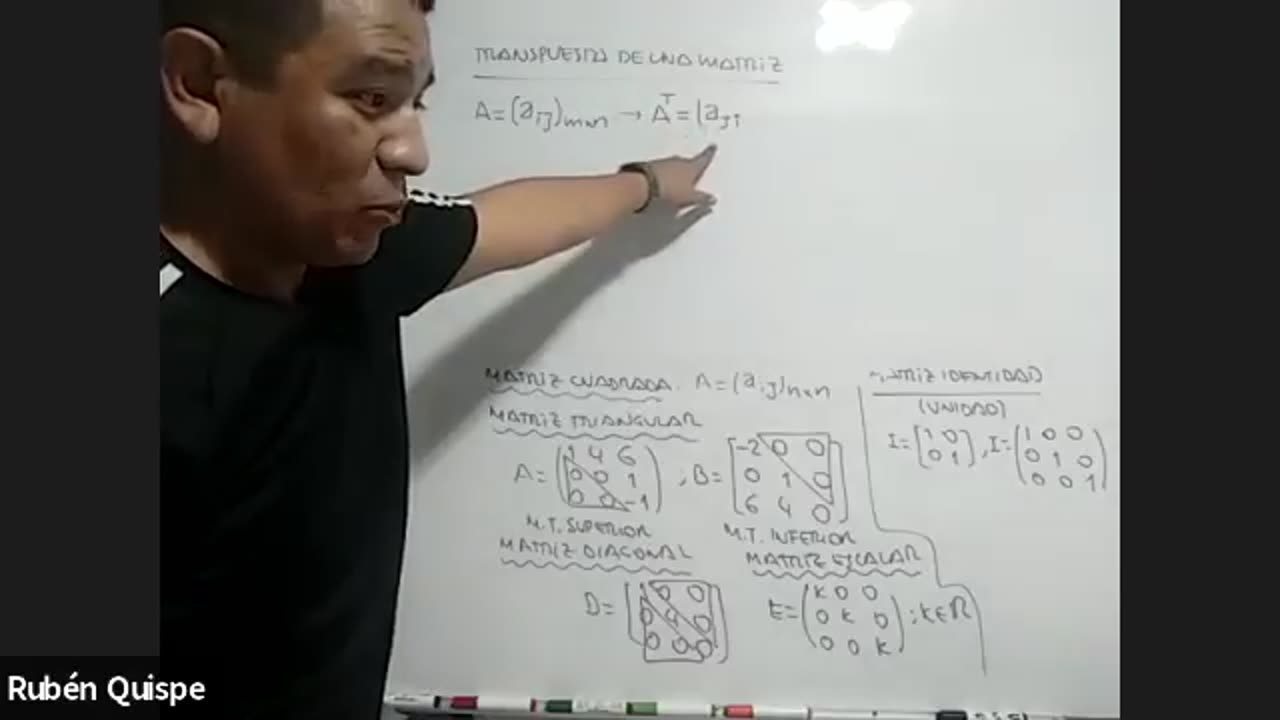 TRANSPUESTA DE UNA MATRIZ
A=(aij)mxn → Aᵀ=(aji
MATRIZ CUADRADA. A=(aij)nxn
MATRIZ TRIANGULAR
A=(1 4 6
0 0 1
0 0 -1)
; B=[-2 0 0
0 1 0
6 4 0]
M.T. SUPERIOR
M.T. INFERIOR
MATRIZ DIAGONAL
D=
0 0
0 4 0
0 0 0
MATRIZ ESCALAR
E=(K 0 0
0 K 0
0 0 K) ; K∈R
MATRIZ IDENTIDAD
(UNIDAD)
I=[1 0
0 1], I=(1 0 0
0 1 0
0 0 1)
Rubén Quispe